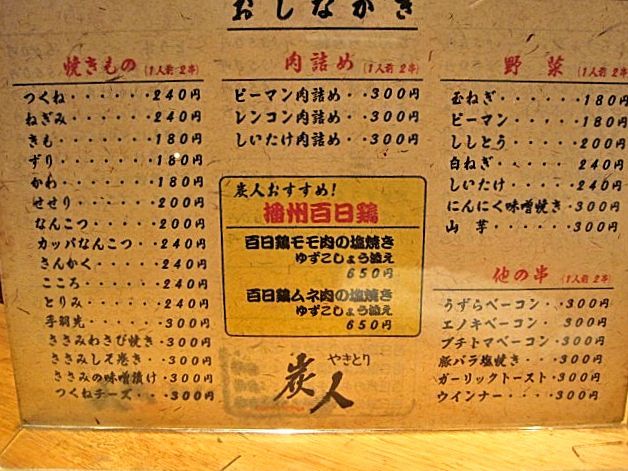 おしながき
焼きもの(1人前 2串)
つくね・・・・・・240円
ねぎみ・・・・・・240円
きも・・・・・・・180円
ずり・・・・・・・180円
かわ・・・・・・・180円
せせり・・・・・・200円
なんこつ・・・・・200円
カッパなんこつ・・240円
さんかく・・・・・240円
こころ・・・・・・240円
とりみ・・・・・・240円
手羽先・・・・・・300円
ささみわさび焼き・300円
ささみしそ巻き・・300円
ささみの味噌漬け・300円
つくねチーズ・・・300円
肉詰め(1人前 2串)
ピーマン肉詰め・・300円
レンコン肉詰め・・300円
しいたけ肉詰め・・300円
炭人おすすめ!
播州百日鶏
百日鶏モモ肉の塩焼き
ゆずこしょう添え
650円
百日鶏ムネ肉の塩焼き
ゆずこしょう添え
650円
やきとり
炭人
野菜(1人前 2串)
玉ねぎ・・・・・・180円
ピーマン・・・・・180円
ししとう・・・・・200円
白ねぎ・・・・・・240円
しいたけ・・・・・240円
にんにく味噌焼き・300円
山芋・・・・・・・300円
他の串(1人前 2串)
うずらベーコン・・300円
エノキベーコン・・300円
プチトマベーコン・300円
豚バラ塩焼き・・・300円
ガーリックトースト・300円
ウインナー・・・・300円